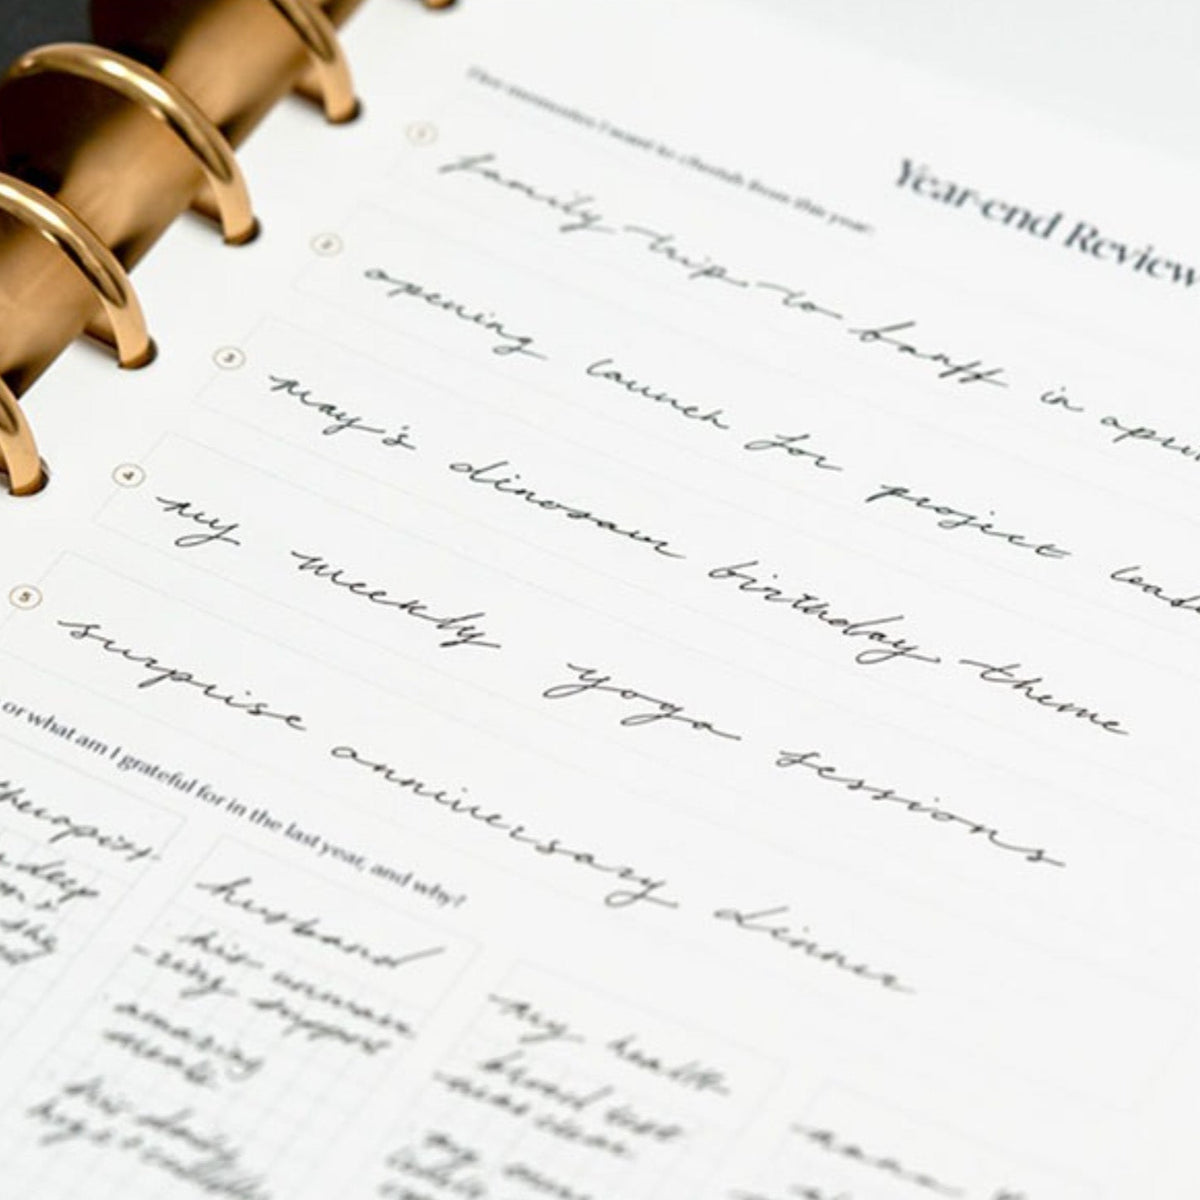 Year-end Review
Five memories I want to cherish from this year:
1 family trip to banff in
2 opening launch for project
3 may's dinosaur birthday theme
4 my weekly yoga sessions
5 surprise anniversary dinner
or what am I grateful for in the last year, and why?
therapist
deep
husband
his unwave
-ring support
amazing
meals
his daily
my health
blood test